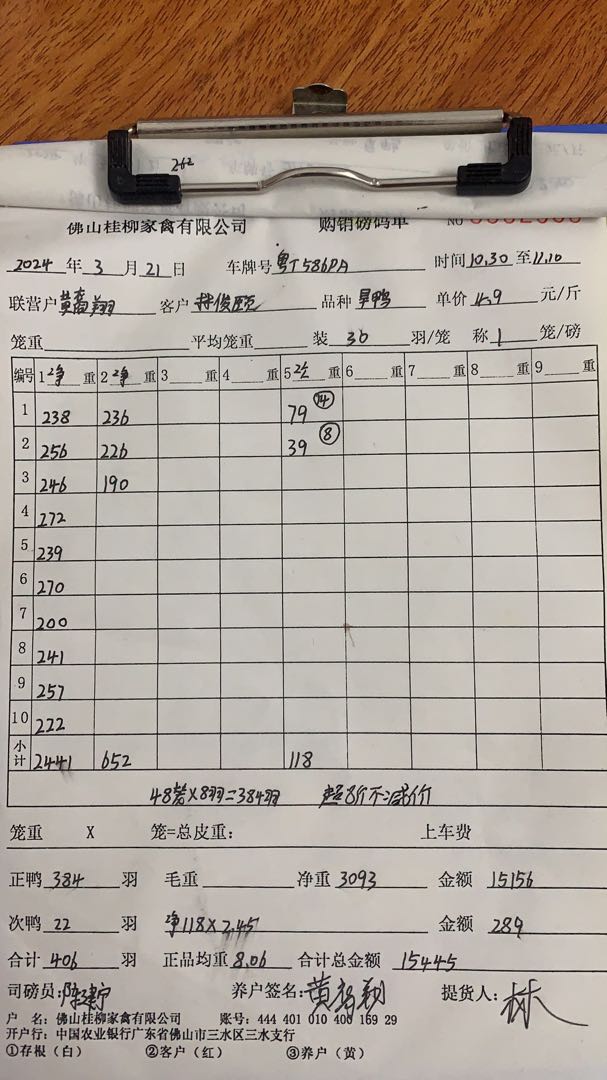 262
佛山桂柳家禽有限公司 购销磅码单 NO
2024 年 3 月 21 日 车牌号 粤T586PA 时间 10.30 至 11.10
联营户 黄高翔 客户 俊颐 品种 旱鸭 单价 4.9 元/斤
笼重 平均笼重 装 36 羽/笼 称 1 笼/磅
编号 1 净 重 2 净 重 3 重 4 重 5 次 重 6 重 7 重 8 重 9 重
1 238 236 79 14
2 256 226 39 8
3 246 190
4 272
5 239
6 270
7 200
8 241
9 257
10 222
小计 2441 652 118
48笼×8羽=384羽 超8斤不减价
笼重 X 笼=总皮重: 上车费
正鸭 384 羽 毛重 净重 3093 金额 15156
次鸭 22 羽 净118×2.45 金额 289
合计 406 羽 正品均重 8.06 合计总金额 15445
司磅员: 养户签名: 黄高翔 提货人: 树
户 名: 佛山桂柳家禽有限公司 账号: 444 401 010 400 169 29
开户行: 中国农业银行广东省佛山市三水区三水支行
①存根（白） ②客户（红） ③养户（黄）